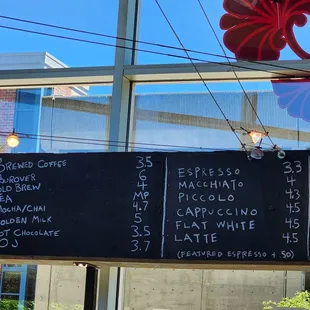 Brewed Coffee 3.5
6
Old Brew 4
MP
Mocha/Chai 4.7
Golden Milk 5
Hot Chocolate 3.5
OJ 3.7
Espresso 3.3
Macchiato 4
Piccolo 4.3
Cappuccino 4.5
Flat White 4.5
Latte 4.5
(Featured Espresso + 50)